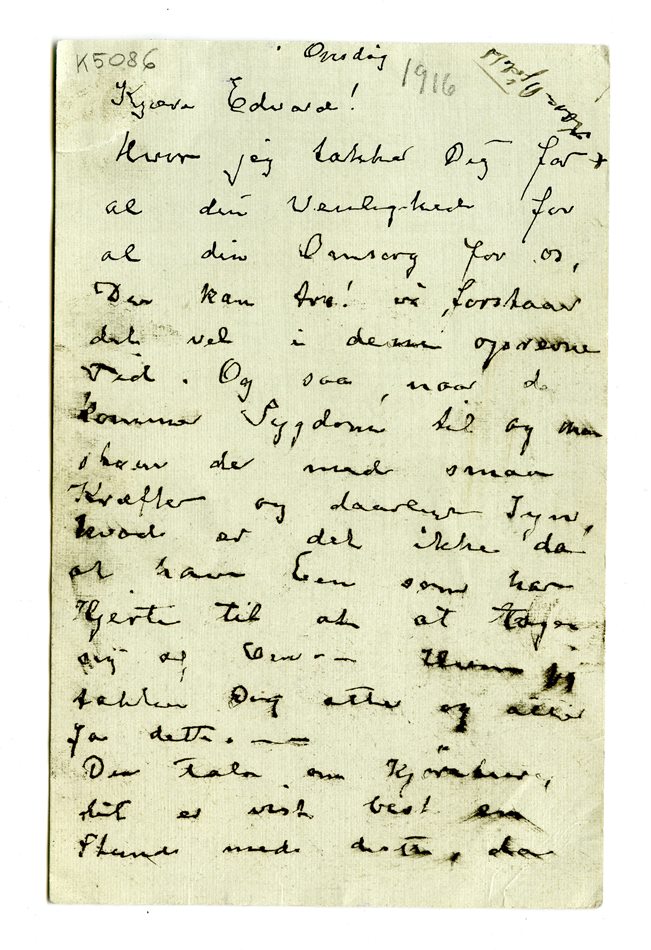 K5086
Onsdag
1916
Kjære Edvard!
Hvor jeg takker Dig for
al din Venlighed for
al din Omsorg for os,
Du kan tro! vi forstaar
det vel i denne oprevne
Tid. Og saa, naar der
kommer Sygdom til og man
staar der med smaa
Kræfter og daarligt Syn,
hvad er det ikke da
at have Een som har
Hjerte til at at tage
sig af Den - - Hvor jeg
takker Dig atter og atter
for dette. - -
Du tale om Kjöreture,
det er vist bedst en
Stund med dette, da